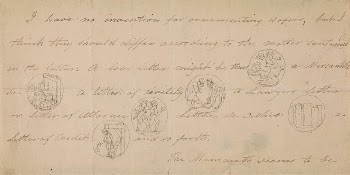 I have no invention for ornamenting wafers, but I
think they should differ according to the matter contained
in the letter. A love letter might be thus a Mercantile
A letter of revelry a Lawyers letter
or letter of Attorney Lettre de a
letter of Credit and so forth.
The Mammoth seems to be